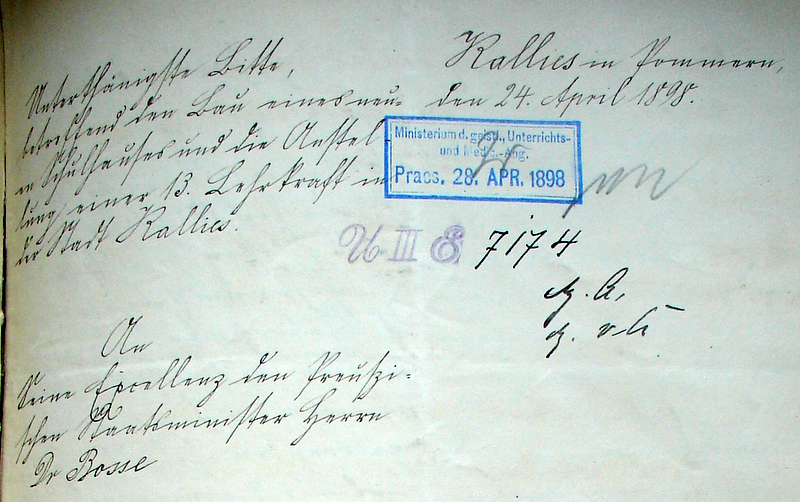 Kallies in Pommern,
den 24. April 1898.
Unterthänigste Bitte,
betreffend den Bau eines neu-
en Schulhauses und die Anstel-
lung einer 13. Lehrkraft in
der Stadt Kallies.
Ministerium d. geistl., Unterrichts-
und Medic.-Ang.
Praes. 28. APR. 1898
U III E 7174
An
Seine Excellenz den Preußi-
schen Staatsminister Herrn
Dr Bosse